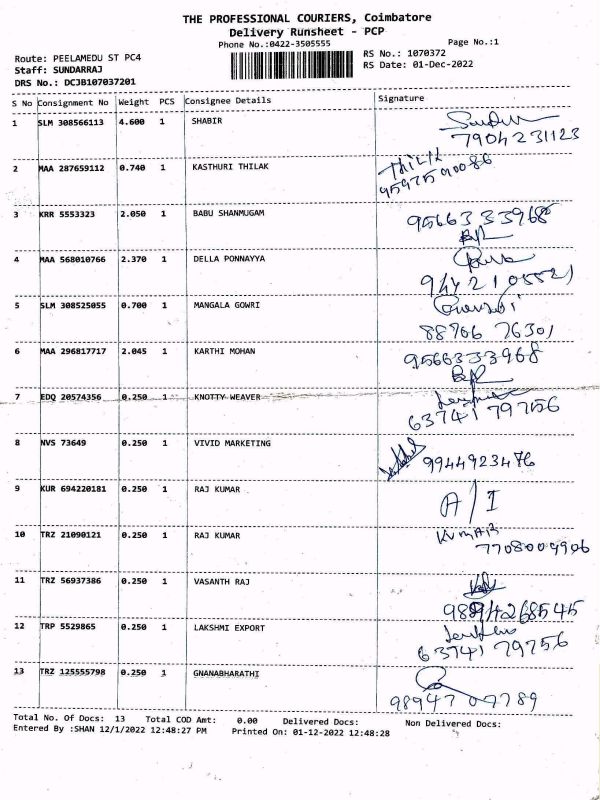 THE PROFESSIONAL COURIERS, Coimbatore
Delivery Runsheet - PCP
Phone No.:0422-3505555
Page No.:1
Route: PEELAMEDU ST PC4
RS No.: 1070372
Staff: SUNDARRAJ
RS Date: 01-Dec-2022
DRS No.: DCJB107037201
S No Consignment No Weight PCS Consignee Details Signature
1 SLM 308566113 4.600 1 SHABIR
7904231123
2 MAA 287659112 0.740 1 KASTHURI THILAK Thilak
3 KRR 5553323 2.050 1 BABU SHANMUGAM 9566333968
4 MAA 568010766 2.370 1 DELLA PONNAYYA
9442105521
5 SLM 308525055 0.700 1 MANGALA GOWRI Gowri
88706 76301
6 MAA 296817717 2.045 1 KARTHI MOHAN 9566333968
7 EDQ 20574356 0.250 1 KNOTTY WEAVER
63741 79756
8 NVS 73649 0.250 1 VIVID MARKETING 9944923476
9 KUR 694220181 0.250 1 RAJ KUMAR A/I
10 TRZ 21090121 0.250 1 RAJ KUMAR KUMAR
7708009906
11 TRZ 56937386 0.250 1 VASANTH RAJ
12 TRP 5529865 0.250 1 LAKSHMI EXPORT
63741 79756
13 TRZ 125555798 0.250 1 GNANABHARATHI
98947 07789
Total No. Of Docs: 13 Total COD Amt: 0.00 Delivered Docs: Non Delivered Docs:
Entered By :SHAN 12/1/2022 12:48:27 PM Printed On: 01-12-2022 12:48:28